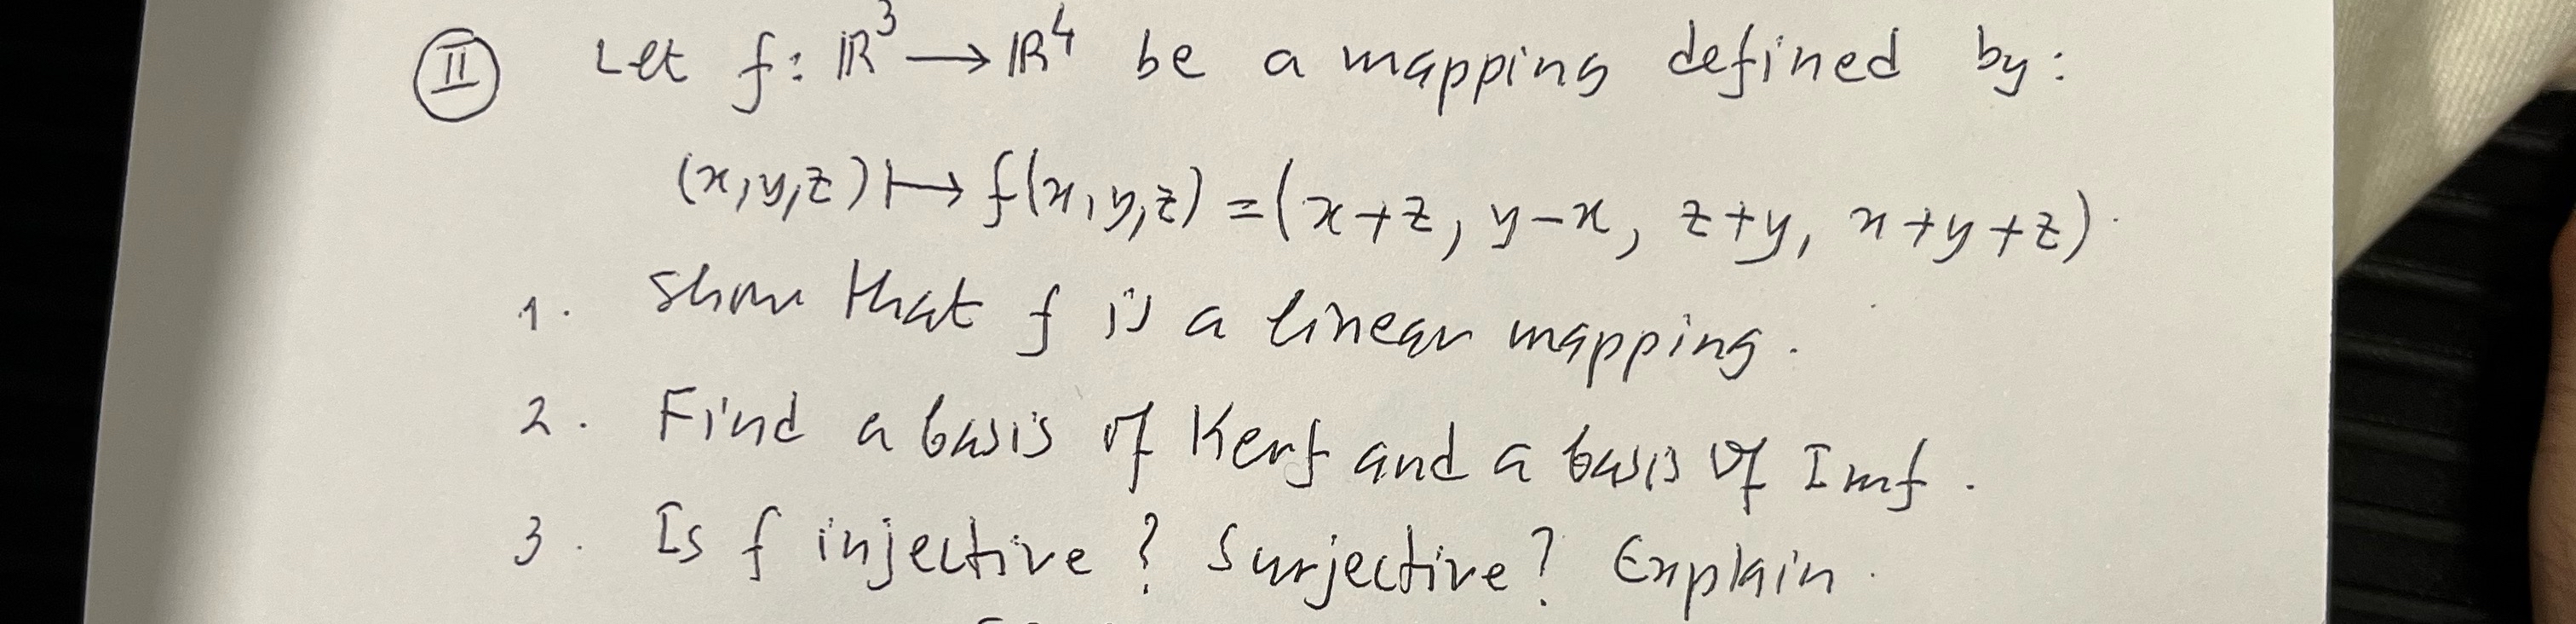 II Let f: ℝ³ → ℝ⁴ be a mapping defined by:
(x,y,z) ↦ f(x,y,z) = (x+z, y-x, z+y, x+y+z).
1. Show that f is a linear mapping.
2. Find a basis of Kerf and a basis of Imf.
3. Is f injective? Surjective? Explain.